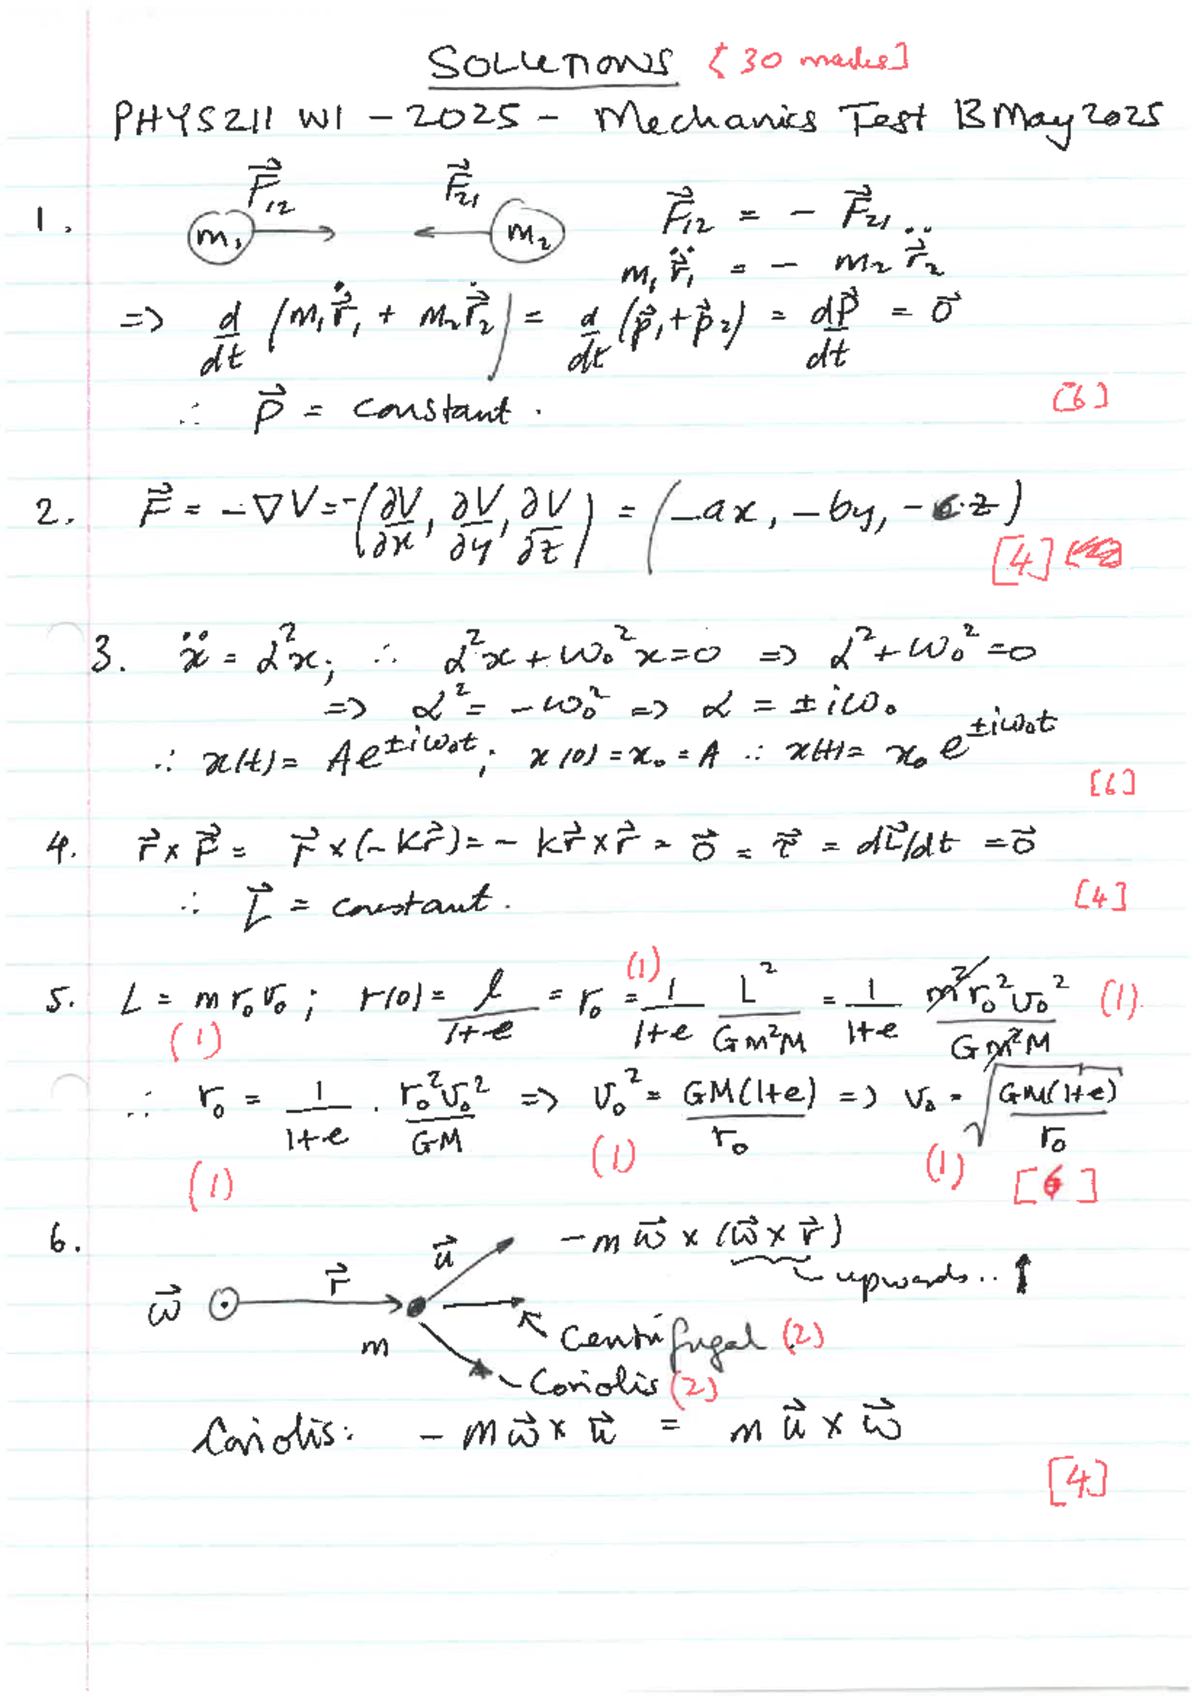 SOLUTIONS [30 marks]
PHYS211 W1 – 2025 – Mechanics Test 13 May 2025
1. F⃗₁₂ F⃗₂₁ F⃗₁₂ = – F⃗₂₁
m₁ m₂ m₁ r⃗̈₁ = – m₂ r⃗̈₂
=> d/dt (m₁ r⃗̇₁ + m₂ r⃗̇₂) = d/dt (p⃗₁ + p⃗₂) = dP⃗/dt = 0⃗
∴ P⃗ = constant. [6]
2. F⃗ = –∇V = –(∂V/∂x, ∂V/∂y, ∂V/∂z) = (–ax, –by, –c z)
[4]
3. ẍ = α²x; ∴ α²x + ω₀²x = 0 => α² + ω₀² = 0
=> α² = –ω₀² => α = ±iω₀
∴ x(t) = Ae^{±iω₀t}; x(0) = x₀ = A ∴ x(t) = x₀ e^{±iω₀t}
[6]
4. r⃗ × F⃗ = r⃗ × (–kr⃗) = – kr⃗ × r⃗ = 0⃗ = τ⃗ = dL⃗/dt = 0⃗
∴ L⃗ = constant. [4]
5. L = m r₀ v₀; r(0) = l/(1+e) = r₀ = 1/(1+e) L²/(Gm²M) = 1/(1+e) m²r₀²v₀²/(Gm²M) (1)
(1) (1)
∴ r₀ = 1/(1+e) · r₀²v₀²/(GM) => v₀² = GM(1+e)/r₀ => v₀ = √(GM(1+e)/r₀)
(1) (1) (1) [6]
6. u⃗ –m ω⃗ × (ω⃗ × r⃗)
upwards.. ↑
ω⃗ r⃗
m Centrifugal (2)
Coriolis (2)
Coriolis: – m ω⃗ × u⃗ = m u⃗ × ω⃗
[4]